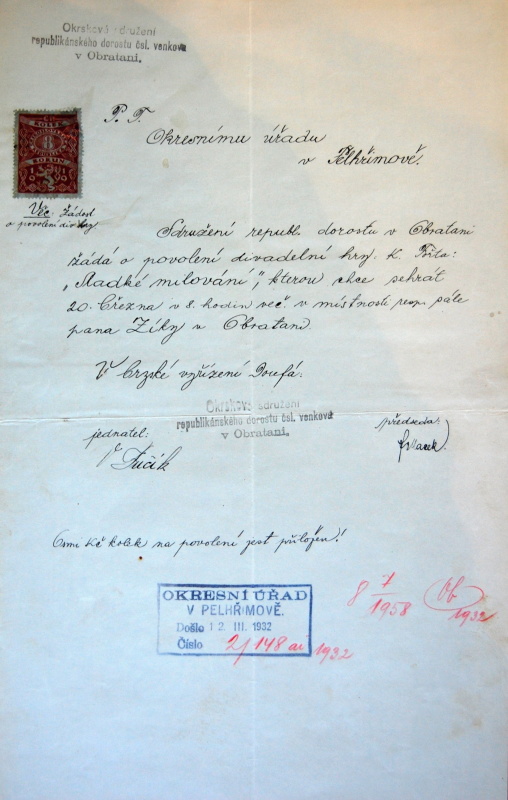 Okrskové sdružení
republikánského dorostu čsl. venkova
v Obratani.
P. T.
Okresnímu úřadu
v Pelhřimově.
KOLEK
8
KORUN
1910
Věc: Žádost
o povolení div. hry
Sdružení republ. dorostu v Obratani
žádá o povolení divadelní hry. K. Fořta:
„Sladké milování", kterou chce sehrát
20. Března v 8. hodin več. v místnosti resp. sále
pana Ziky v Obratani.
V Brzské vyřízení Doufá:
Okrskové sdružení
republikánského dorostu čsl. venkova
v Obratani.
jednatel:
předseda:
V Fučík
Osmi Kč kolek na povolení jest přiložen!
OKRESNÍ ÚŘAD
V PELHŘIMOVĚ.
Došlo 12. III. 1932
Číslo 2/148 ai 1932
8 7/1958
Ob 1932